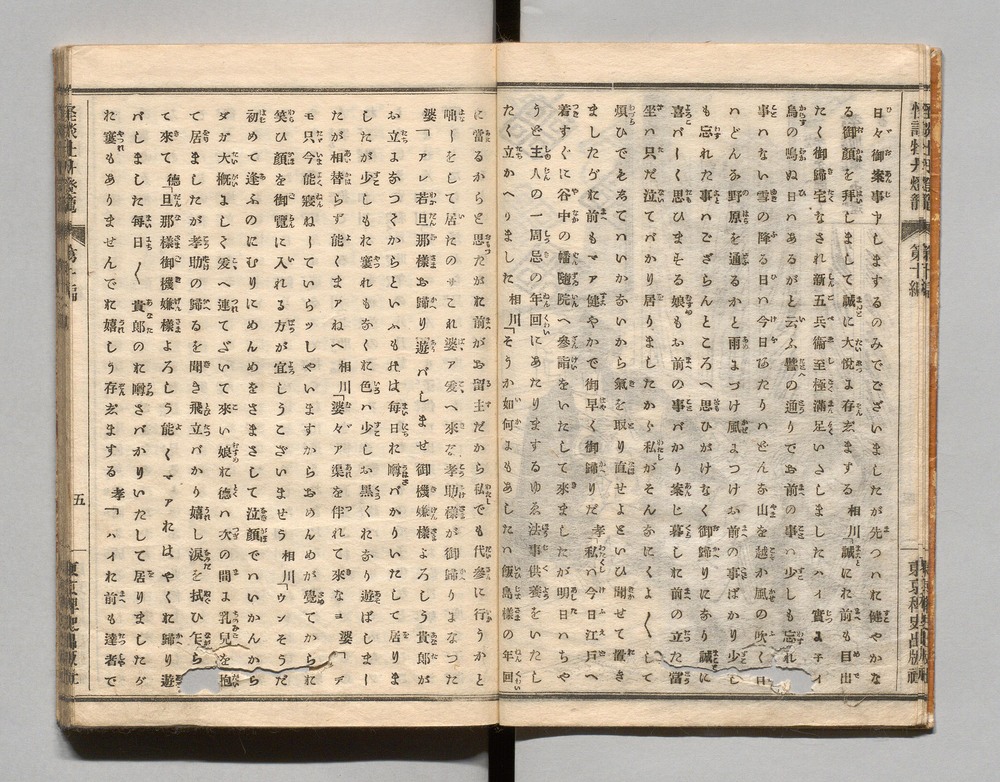 怪談牡丹燈籠 第十編
日々御案事申しまするのみでございましたが先つハれ健やかな
る御顔を拝しまして誠に大悦よ存玄まする 相川「誠にれ前も目出
たく御歸宅なされ新五兵衛至極滿足いさしましたハイ實よ子イ
烏の鳴ぬ日ハあるがと云ふ譬の通りでお前の事ハ少しも忘れ
事ハない雪の降る日ハ今日あたりハどんな山を越か風の吹く日
ハどんる野原を通るかと雨よつけ風よつけお前の事ばかり少し
も忘れた事ハござらんところへ思ひがけなく御歸りにあり誠に
喜バしく思ひまそる娘もお前の事バかり案じ暮しれ前の立た當
坐ハ只だ泣てバかり居りましたから私がそんなにくよ〱して
煩ひでもゑてハいかないから氣を取り直せよといひ聞せて置き
ましたがれ前もマア健やかで御早く御歸りだ 孝「私ハ今日江戸へ
着すぐに谷中の幡隨院へ參詣をいたして來ましたが明日ハちや
うど主人の一周忌の年回にあたりまするゆゑ法事供養をいたし
たく立かへりました 相川「そうか如何よもあしたハ飯島樣の年回
に當るからと思たがれ前がお留主だから私でも代參に行うかと
咄しをして居たのサこれ婆ア爰へ來な孝助樣が御歸りよなつた
婆「アレ若旦那様お歸り遊バしませ御機嫌樣よろしう貴郎が
お立よあつてからといふも此は毎日れ噂バかりいたして居りま
したが少しもれ窶れもなくに色ハ少しお黒くれなり遊ばしまし
たが相替らず能くまアねへ 相川「婆々ア渠を伴れて來なョ 婆「デ
モ只今能寢ねしていらッしやいますからおめんめが覺てから
笑ひ顔を御覽に入れる方が宜しうございませう 相川「ウンそうだ
初めて逢ふのにむりにめんめをさまさして泣顔でハいかんから
ダガ大概よして爰へ連てざいて來い娘れ德ハ次の間よ乳兒を抱
て居ましたが孝助の歸るを聞き飛立バかり嬉し涙を拭ひ乍ら
て來て 德「旦那樣御機嫌樣よろしう能く〱マアれはやくれ歸り遊
バしました毎日〱貴郎のれ噂さバかりいたして居りましたガ
れ窶もありませんでれ嬉しう存玄まする 孝「ハイれ前も達者で
怪談牡丹燈籠 第十編
五
東京稗史出版社